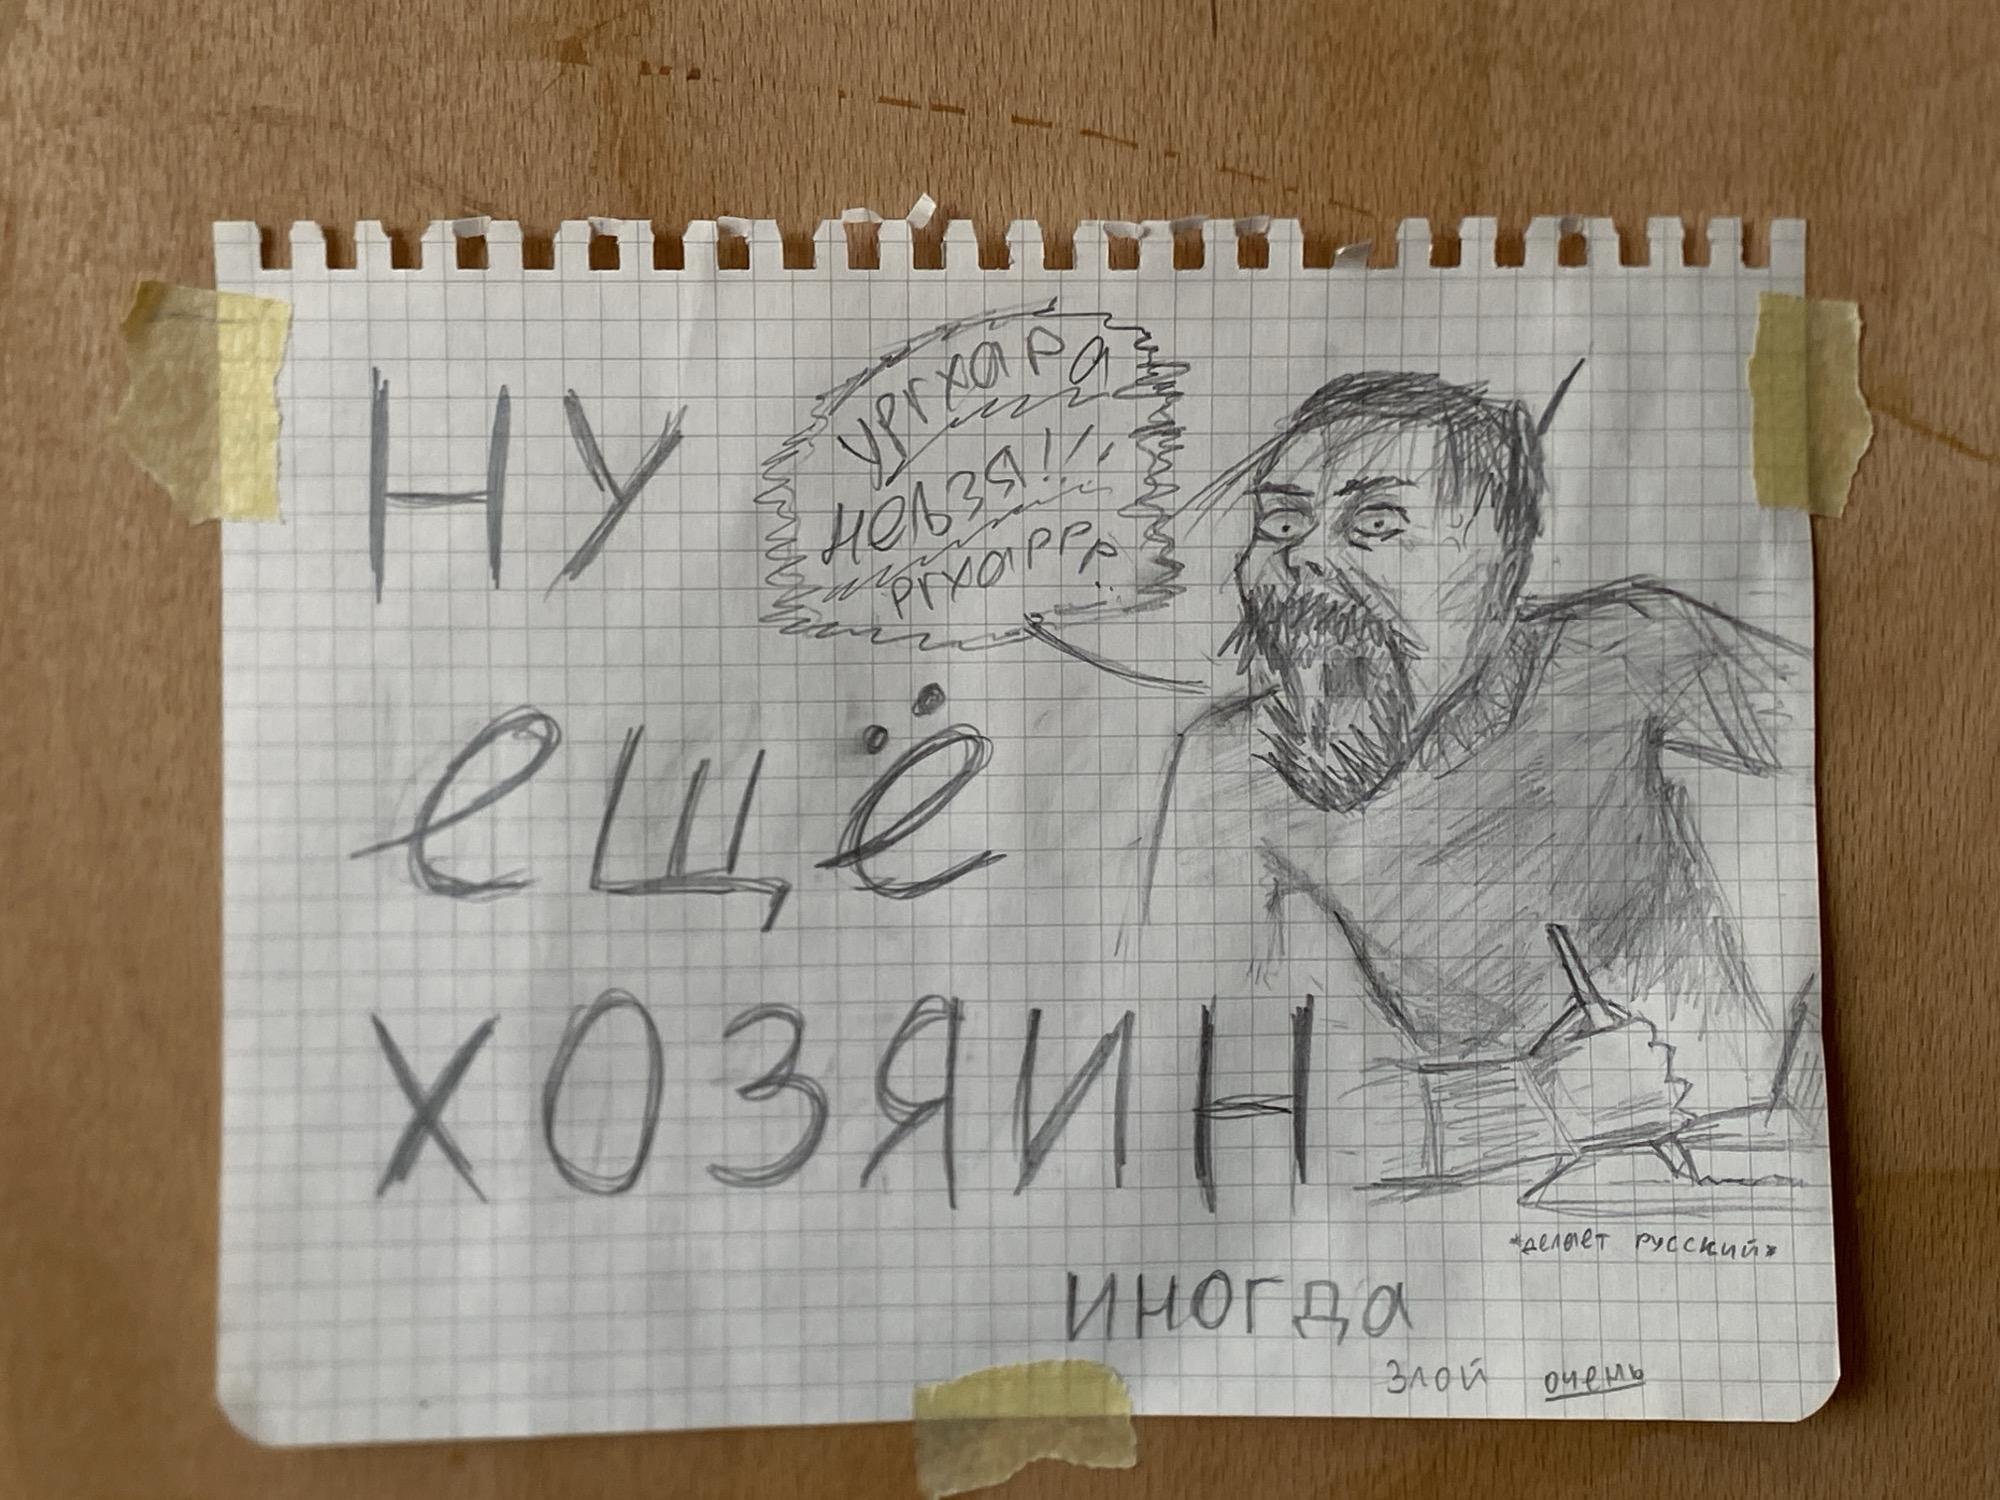 НУ
УРГХАРА
НЕЬЗЯ!!!
РГХАРРР
ЕЩЁ
ХОЗЯИН
*ДЕЛАЕТ РУССКИЙ*
ИНОГДА
ЗЛОЙ ОЧЕНЬ